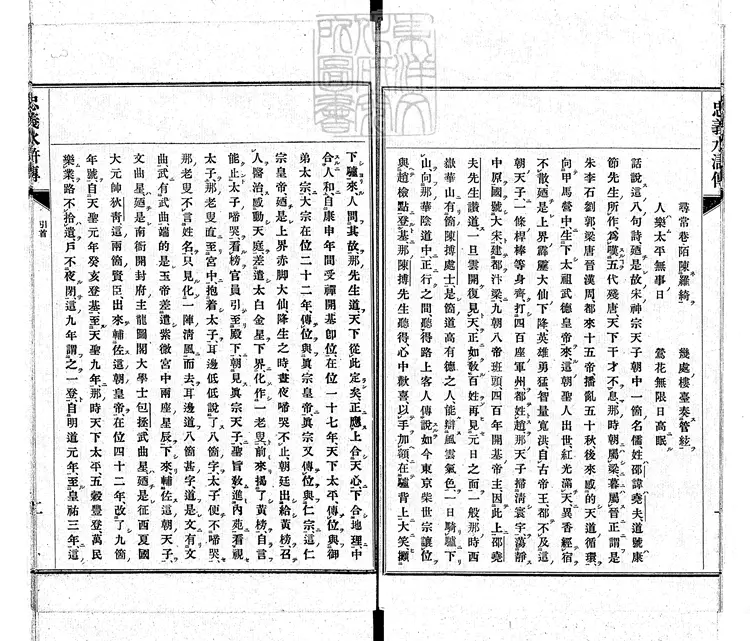 忠義水滸傳
尋常巷陌陳羅綺
幾處樓臺奏管絃
人樂太平無事日
鶯花無限日高眠
話說這八句詩廼是故宋神宗天子朝中一箇名儒姓邵諱堯夫道號康
節先生所作爲嘆五代殘唐天下干戈不息那時朝屬梁暮屬晉正謂是
朱李石劉郭梁唐晉漢周都來十五帝播亂五十秋後來感的天道循環
向甲馬營中生下太祖武德皇帝來這朝聖人出世紅光滿天異香經宿
不散廼是上界霹靂大仙下降英雄勇猛智量寬洪自古帝王都不及這
朝天子一條桿棒等身齊打四百座軍州都姓趙那天子掃清寰宇蕩靜
中原國號大宋建都汴梁九朝八帝班頭四百年開基帝主因此上邵堯
夫先生讚道一旦雲開復見天正如教百姓再見天日之面一般那時西
嶽華山有箇陳摶處士是箇道高有德之人能辯風雲氣色一日騎驢下
山向那華陰道中正行之間聽得路上客人傳說如今東京柴世宗讓位
與趙檢點登基那陳摶先生聽得心中歡喜以手加額在驢背上大笑攧
下驢來人問其故那先生道天下從此定矣正應上合天心下合地理中
合人和自庚申年間受禪開基卽位在位一十七年天下太平傳位與御
弟太宗太宗在位二十二年傳位與眞宗皇帝眞宗又傳位與仁宗這仁
宗皇帝廼是上界赤脚大仙降生之時晝夜啼哭不止朝廷出給黃榜召
人醫治感動天庭差遣太白金星下界化作一老叟前來揭了黃榜自言
能止太子啼哭看榜官員引至殿下朝見眞宗天子聖旨敎進內苑看視
太子那老叟直至宮中抱着太子耳邊低低說了八箇字太子便不啼哭
那老叟不言姓名只見化一陣淸風而去耳邊道八箇甚字道是文有文
曲武有武曲端的是玉帝差遣紫微宮中兩座星辰下來輔佐這朝天子
文曲星廼是南衙開封府主龍圖閣大學士包拯武曲星廼是征西夏國
大元帥狄靑這兩箇賢臣出來輔佐這朝皇帝在位四十二年改了九箇
年號自天聖元年癸亥登基至天聖九年那時天下太平五穀豐登萬民
樂業路不拾遺戶不夜閉這九年謂之一登自明道元年至皇祐三年這
忠義水滸傳
引首